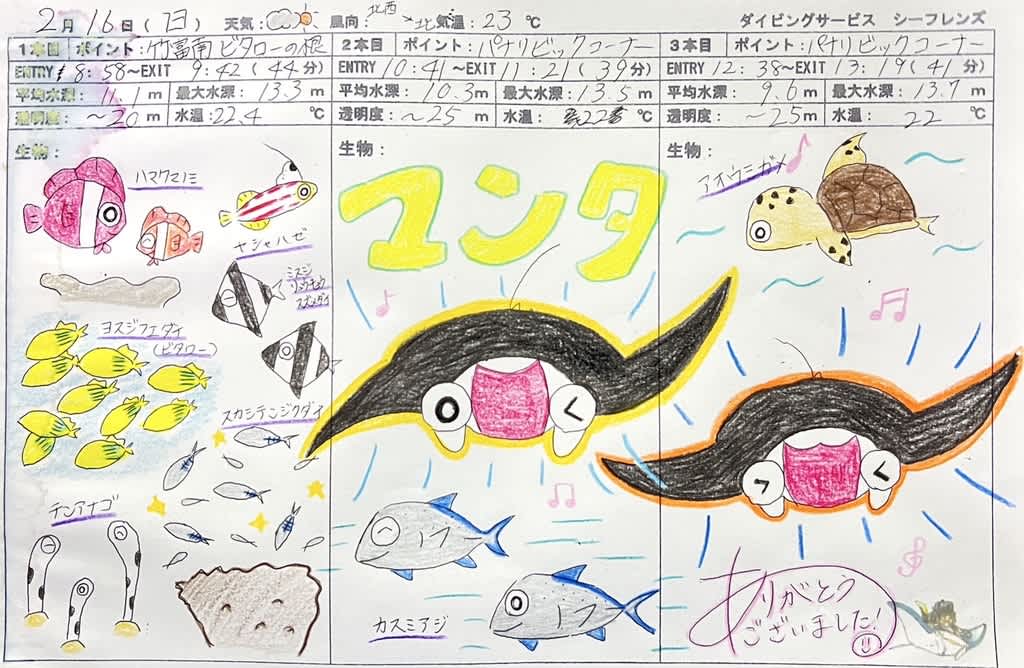 2月16日(日) 天気: 風向:北西→北 気温:23℃ ダイビングサービス シーフレンズ
1本目 ポイント:竹富南ビタローの根
ENTRY 8:58~EXIT 9:42(44分)
平均水深:11.1m 最大水深:13.3m
透明度:~20m 水温:22.4℃
生物:
ハマクマノミ
ヤシャハゼ
ミスジ
リュウキュウ
スズメダイ
ヨスジフエダイ
(ビタロー)
スカシテンジクダイ
チンアナゴ
2本目 ポイント:パナリビックコーナー
ENTRY 10:41~EXIT 11:21(39分)
平均水深:10.3m 最大水深:13.5m
透明度:~25m 水温:22℃
生物:
マンタ
カスミアジ
3本目 ポイント:パナリビックコーナー
ENTRY 12:38~EXIT 13:19(41分)
平均水深:9.6m 最大水深:13.7m
透明度:~25m 水温:22℃
生物:
アオウミガメ
ありがとう
ございました!